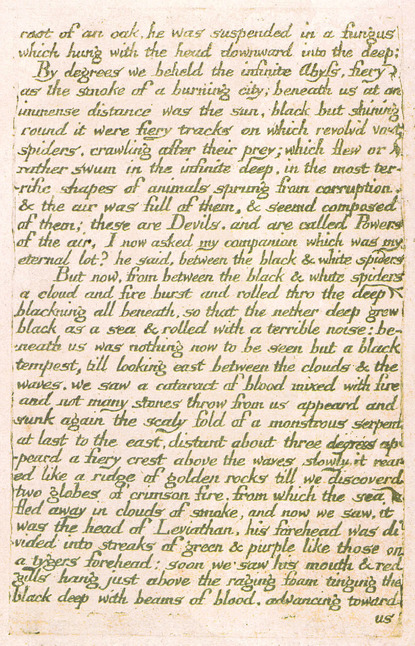 root of an oak, he was suspended in a fungus
which hung with the head downward into the deep;
By degrees we beheld the infinite Abyss, fiery
as the smoke of a burning city; beneath us at an
immense distance was the sun, black but shining
round it were fiery tracks on which revolv'd vast
spiders, crawling after their prey; which flew or
rather swum in the infinite deep, in the most ter-
rific shapes of animals sprung from corruption.
& the air was full of them, & seemd composed
of them; these are Devils, and are called Powers
of the air, I now asked my companion which was my
eternal lot? he said, between the black & white spiders
But now, from between the black & white spiders
a cloud and fire burst and rolled thro the deep
blackning all beneath, so that the nether deep grew
black as a sea & rolled with a terrible noise: be-
-neath us was nothing now to be seen but a black
tempest, till looking east between the clouds & the
waves, we saw a cataract of blood mixed with fire
and not many stones throw from us appeard and
sunk again the scaly fold of a monstrous serpent
at last to the east, distant about three degrees ap-
-peard a fiery crest above the waves slowly it rear-
ed like a ridge of golden rocks till we discoverd
two globes of crimson fire, from which the sea
fled away in clouds of smoke, and now we saw, it
was the head of Leviathan, his forehead was di-
vided into streaks of green & purple like those on
a tygers forehead: soon we saw his mouth & red
gills hang just above the raging foam tinging the
black deep with beams of blood, advancing toward
us